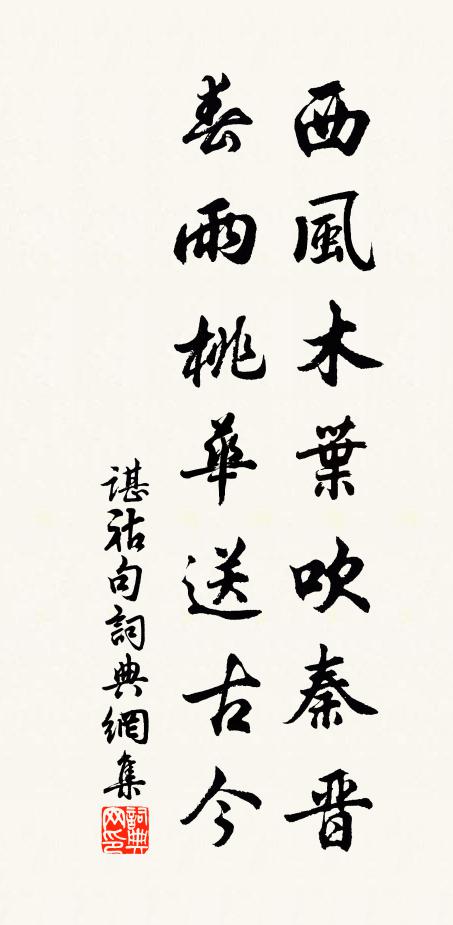 西風木葉吹秦晋
春雨桃華送古今
諶祜句詞典網集
詞典网印